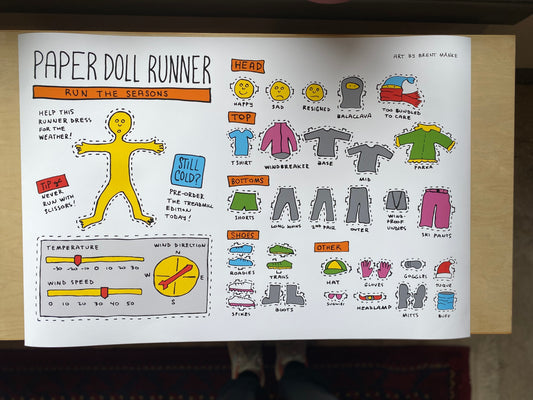 PAPER DOLL RUNNER
RUN THE SEASONS
ART BY BRENT MANKE
HELP THIS
RUNNER DRESS
FOR THE
WEATHER!
TIP #
NEVER
RUN WITH
SCISSORS!
STILL
COLD?
PRE-ORDER
THE TREADMILL
EDITION
TODAY!
TEMPERATURE
-30 -20 -10 0 10 20 30
WIND SPEED
0 10 20 30 40 50
WIND DIRECTION
N
W
E
S
HEAD
HAPPY
SAD
RESIGNED
BALACLAVA
TOO BUNDLED
TO CARE
TOP
T SHIRT
WINDBREAKER
BASE
MID
PARKA
BOTTOMS
SHORTS
LONG JOHNS
2ND PAIR
OUTER
WIND-
PROOF
UNDIES
SKI PANTS
SHOES
ROADIES
TRAILS
SPIKES
BOOTS
OTHER
HAT
GLOVES
GOGGLES
TUQUE
SUNNIES
HEADLAMP
MITTS
BUFF